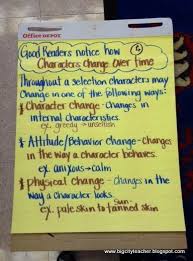 Office DEPOT
Good Readers notice how
Characters Change Over Time
Throughout a selection characters may
Change in one of the following ways:
Character change - Changes in
internal characteristics.
ex. greedy → unselfish
Attitude/Behavior change - Changes
in the way a character behaves.
ex. anxious → calm
Physical change - changes in the
way a character looks.
ex. pale skin to sun-tanned skin
www.bigcityteacher.blogspot.com